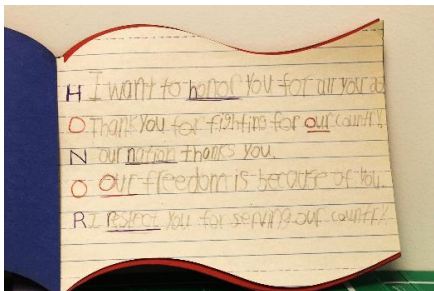 H I want to honor you for all you do
O Thank you for fighting for our country.
N our nation thanks you.
O Our freedom is because of you.
R I restrect you for serving our country.